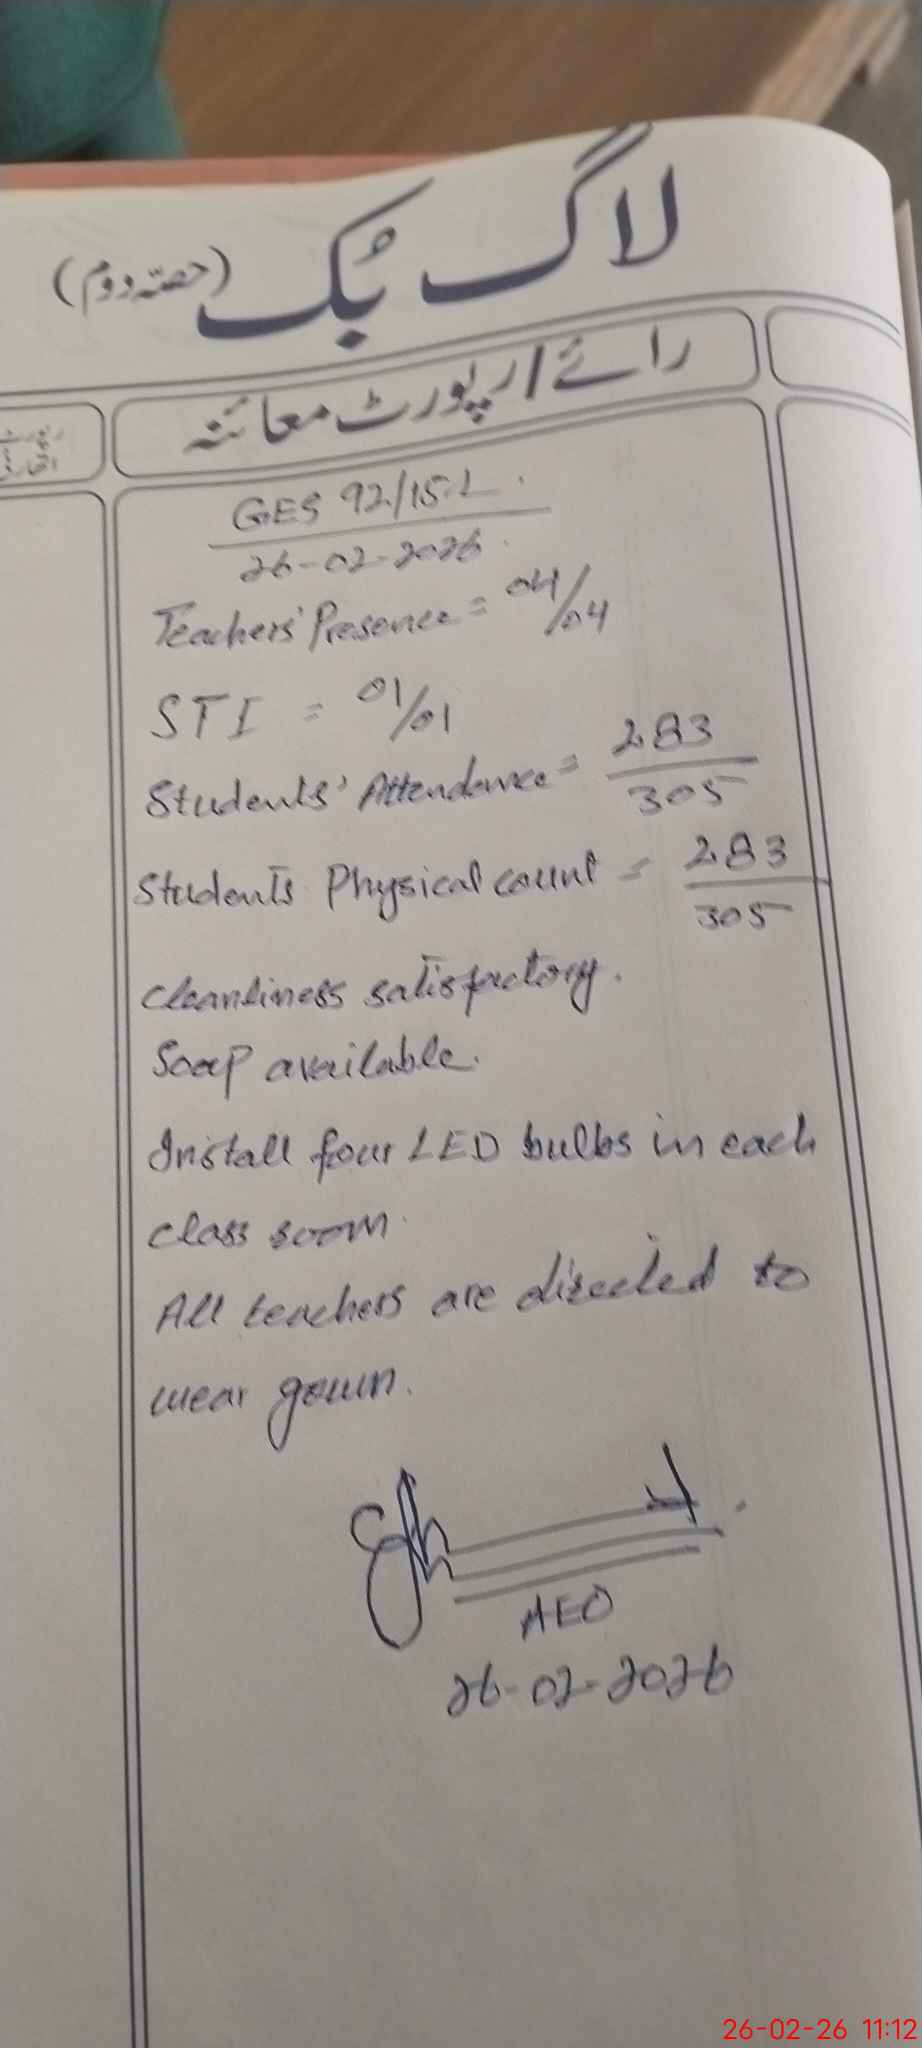 لاگ بُک (حصّہ دوم)
رائے / رپورٹ معائنہ
GES 92/15-L.
26-02-2026.
Teachers' Presence = 04/04
STI = 01/01
Students' Attendance = 283/305
Students Physical count = 283/305
Cleanliness satisfactory.
Soap available.
Install four LED bulbs in each
class room.
All teachers are directed to
wear gown.
AEO
26-02-2026
26-02-26 11:12